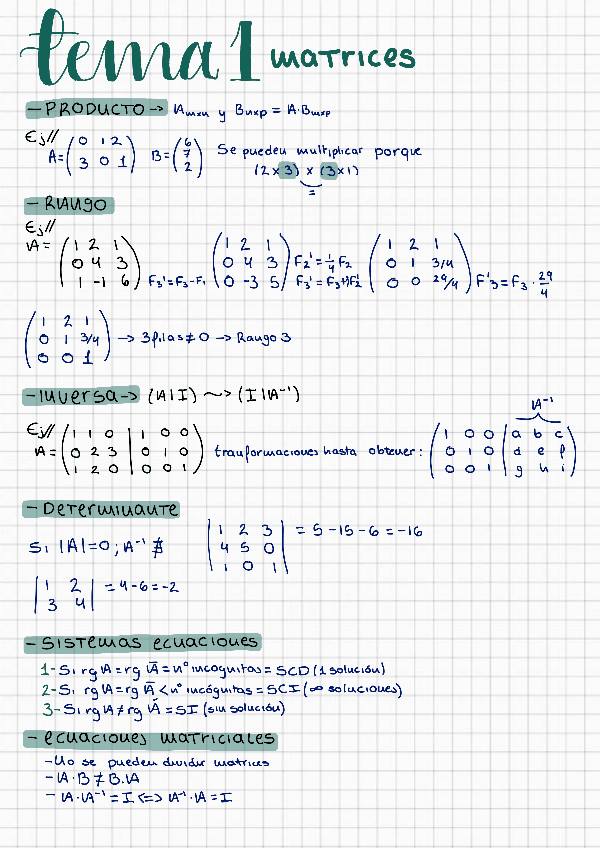 tema 1 matrices
- PRODUCTO -> Amxn y Bnxp = A·Bmxp
Ej//
A= (0 1 2 / 3 0 1) B= (6 / 7 / 2) Se pueden multiplicar porque
(2 x 3) x (3 x 1)
=
- RANGO
Ej//
A= (1 2 1 / 0 4 3 / 1 -1 6) F₃'=F₃-F₁ (1 2 1 / 0 4 3 / 0 -3 5) F₂'=1/4 F₂ F₃'=F₃+3F₂' (1 2 1 / 0 1 3/4 / 0 0 29/4) F'₃=F₃·29/4
(1 2 1 / 0 1 3/4 / 0 0 1) -> 3 filas ≠ 0 -> Rango 3
- Inversa -> (A|I) ~> (I|A⁻¹)
A⁻¹
Ej//
A= (1 1 0 | 1 0 0 / 0 2 3 | 0 1 0 / 1 2 0 | 0 0 1) tranformaciones hasta obtener: (1 0 0 | a b c / 0 1 0 | d e f / 0 0 1 | g h i)
- Determinante
Si |A|=0; A⁻¹ ∄ |1 2 3 / 4 5 0 / 1 0 1| = 5 -15 -6 = -16
|1 2 / 3 4| = 4-6 = -2
- Sistemas ecuaciones
1- Si rg A = rg Ā = nº incognitas = SCD (1 solución)
2- Si rg A = rg Ā < nº incógnitas = SCI (∞ soluciones)
3- Si rg A ≠ rg Ā = SI (sin solución)
- ecuaciones matriciales
- No se pueden dividir matrices
- A·B ≠ B·A
- A·A⁻¹ = I <=> A⁻¹·A = I